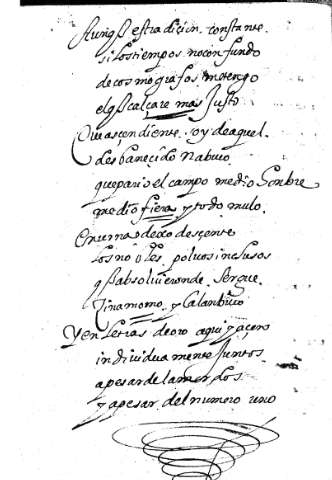 Aunq̃ es tradicion constante.
si los tiempos no confundo
de cosmografos me tengo
el q̃ calçare mas Justo
Que asçendiente. soy de aquel
desbaneçido Nabuco
que pario el campo medio hombre
medio fiera y todo mulo.
En urna dexo desçente
los nobles polvos inclusos
q̃ absolvieron de ser que
Cinamomo y Calanbuco
Y en letras de oro aqui yaçen
individua mente juntos
a pesar del amor dos
y a pesar del numero uno